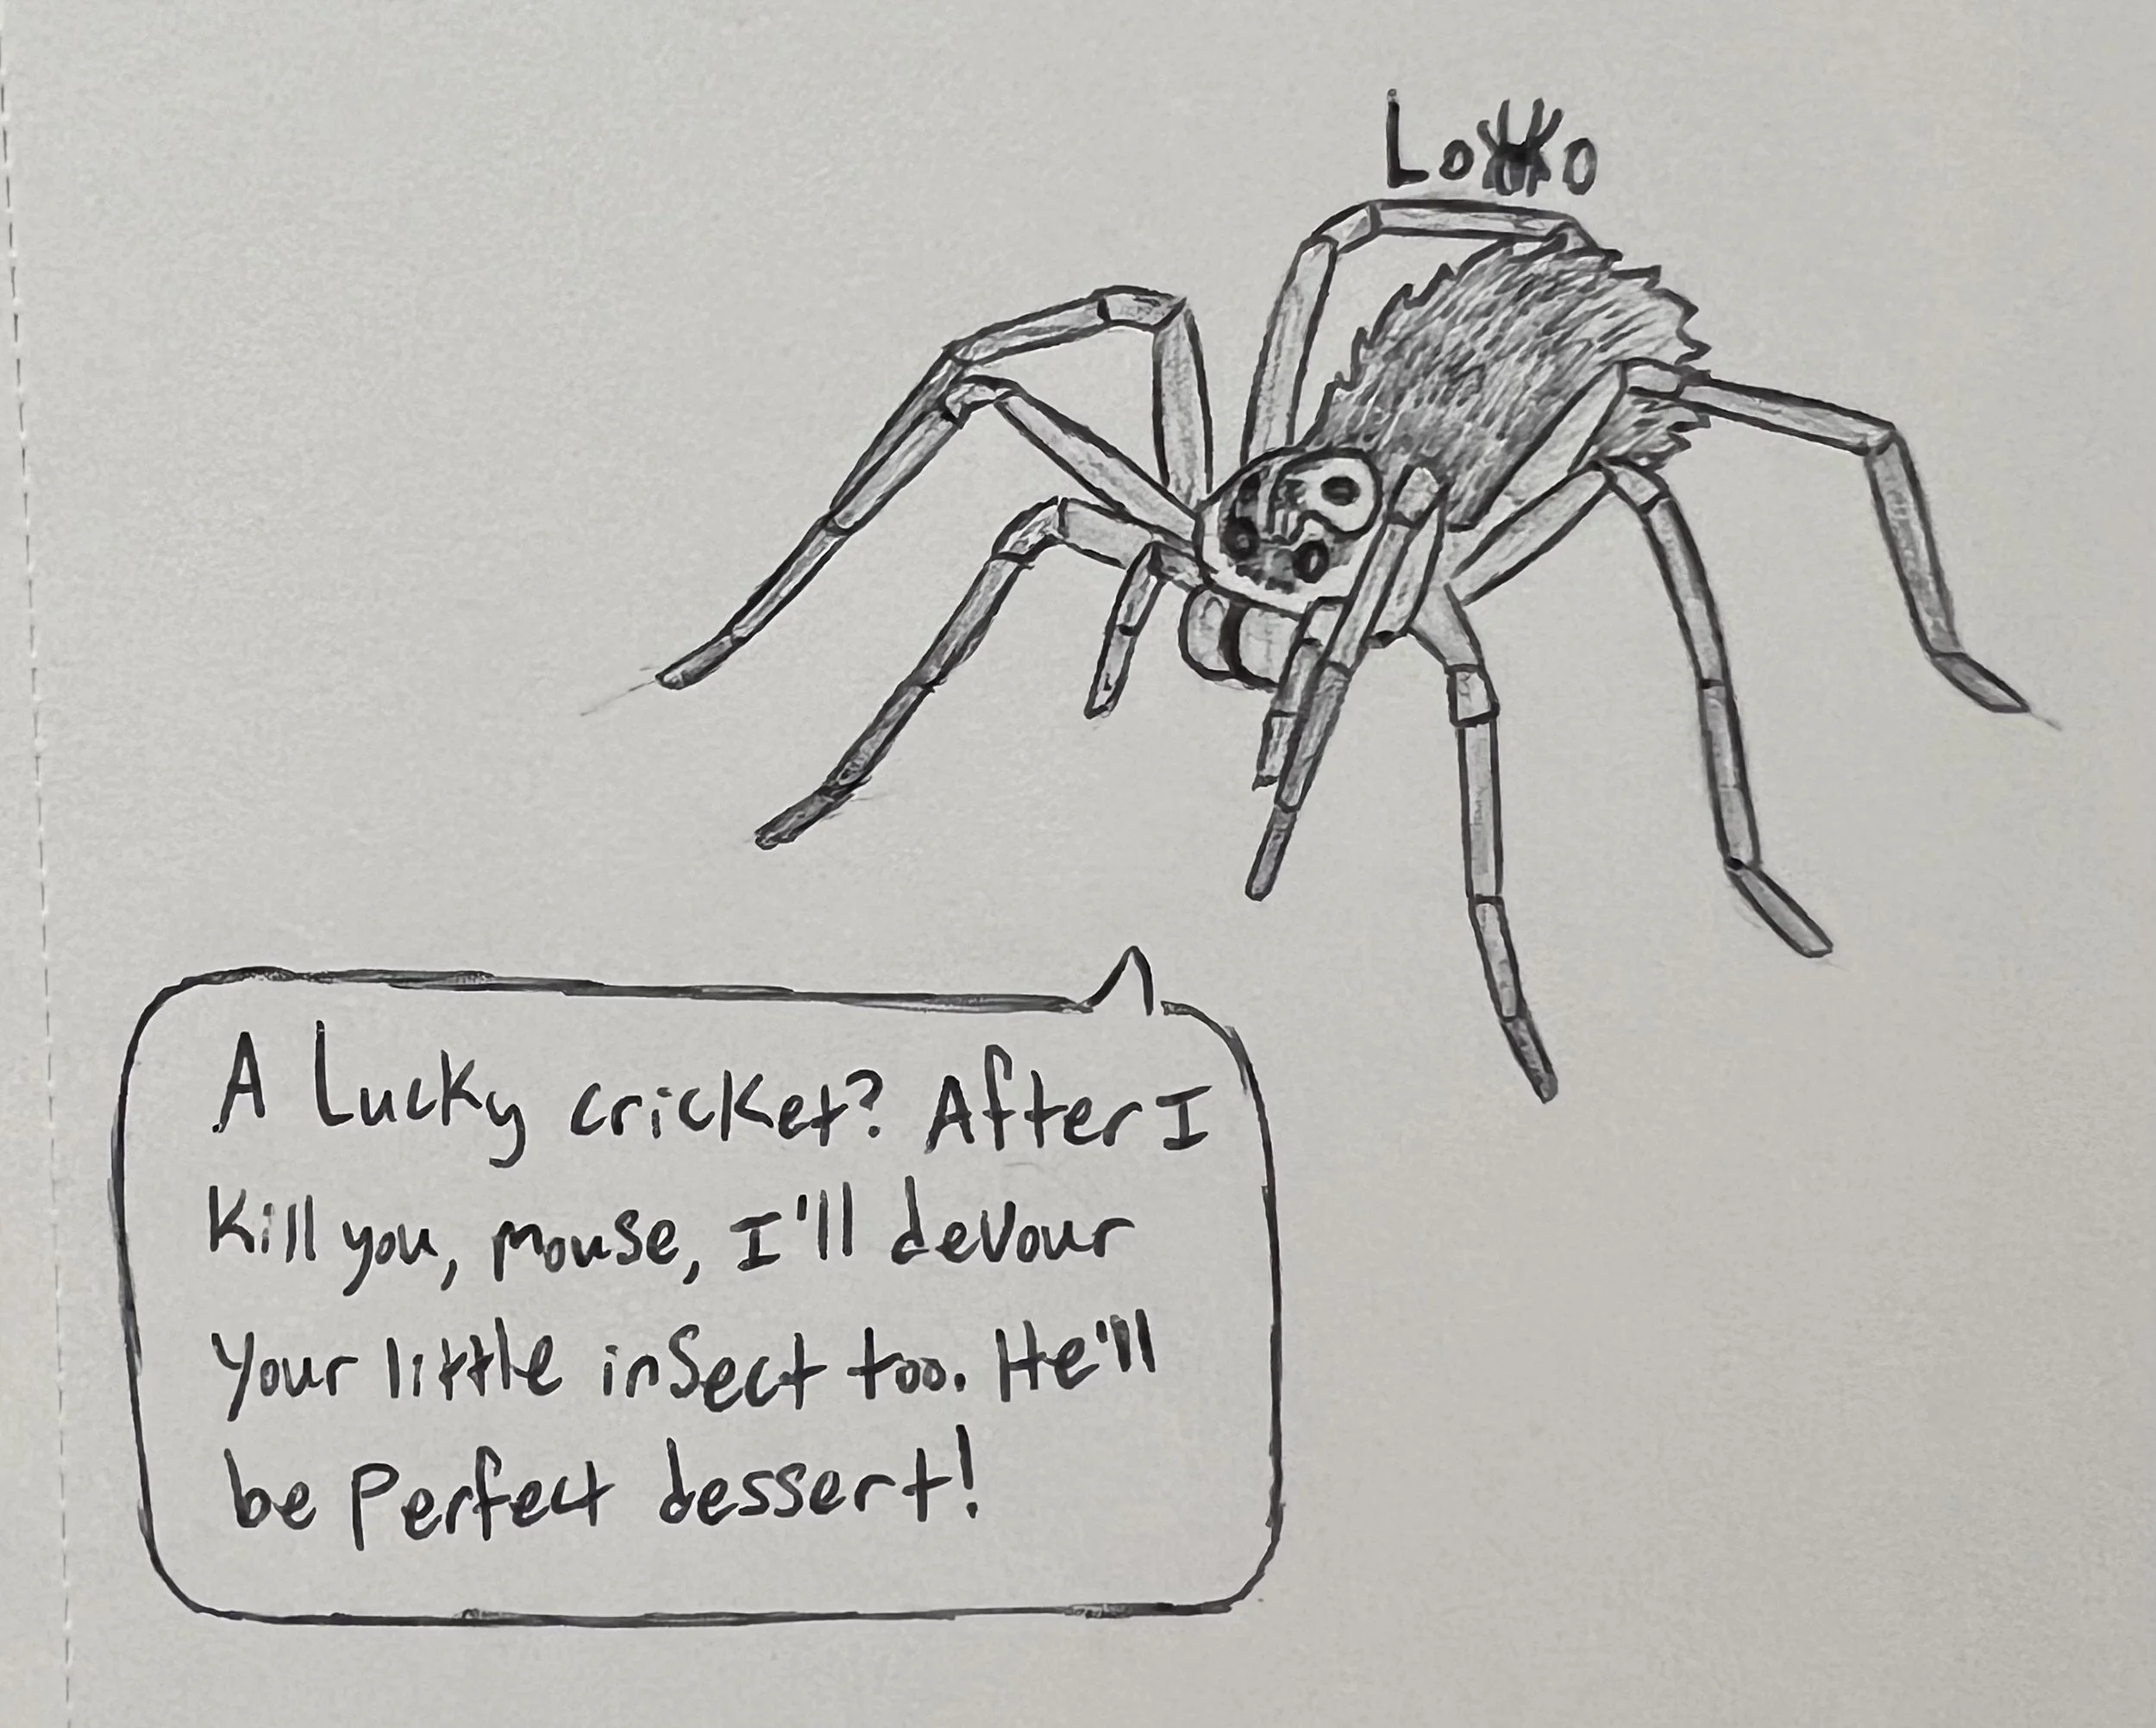 Lo o
A Lucky cricket? After I
Kill you, mouse, I'll devour
Your little insect too. He'll
be Perfect dessert!